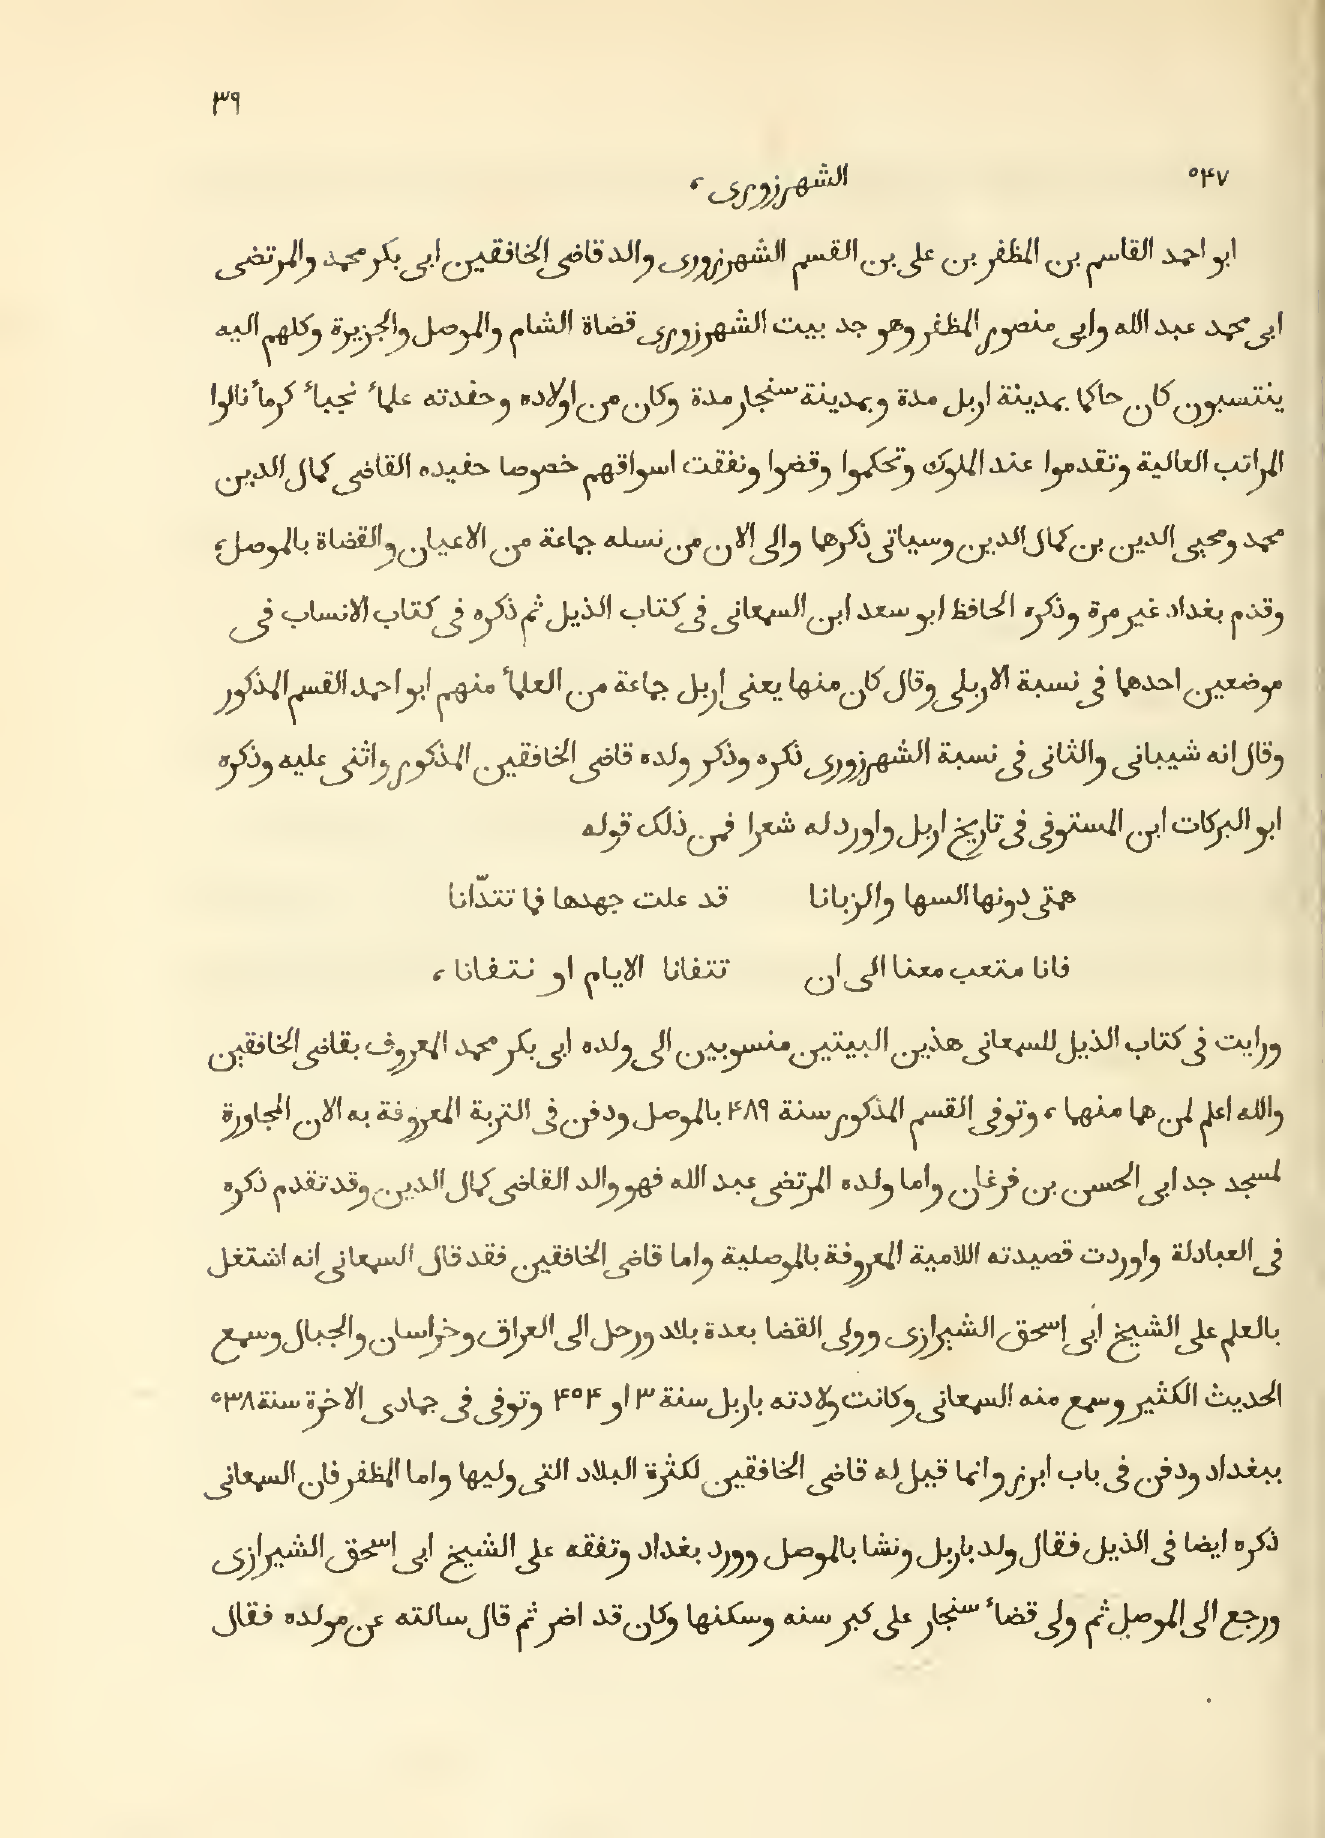 ٣٩
٥٤٧ الشهرزورى ،
ابو احمد القاسم بن المظفر بن على بن القسم الشهرزورى والد قاضى الخافقين ابى بكر محمد والمرتضى
ابى محمد عبد الله وابى منصور المظفر وهو جد بيت الشهرزورى قضاة الشام والموصل والجزيرة وكلهم اليه
ينتسبون كان حاكما بمدينة اربل مدة وبمدينة سنجار مدة وكان من اولاده وحفدته علمأ نجبأ كرمأ نالوا
المراتب العالية وتقدموا عند الملوك وتحكموا وقضوا ونفقت اسواقهم خصوصا حفيده القاضى كمال الدين
محمد ومحيى الدين بن كمال الدين وسياتى ذكرهما والى الان من نسله جماعة من الاعيان والقضاة بالموصل ،
وقدم بغداد غير مرة وذكره الحافظ ابو سعد ابن السمعانى فى كتاب الذيل ثم ذكره فى كتاب الانساب فى
موضعين احدهما فى نسبة الاربلى وقال كان منها يعنى اربل جماعة من العلمأ منهم ابو احمد القسم المذكور
وقال انه شيبانى والثانى فى نسبة الشهرزورى ذكره وذكر ولده قاضى الخافقين المذكور واثنى عليه وذكره
ابو البركات ابن المستوفى فى تاريخ اربل واورد له شعرا فمن ذلك قوله
همتى دونها السها والزبانا قد علت جهدها فما تتدّانا
فانا متعب معنا الى ان تتفانا الايام او نتفانا ،
ورايت فى كتاب الذيل للسمعانى هذين البيتين منسوبين الى ولده ابى بكر محمد المعروف بقاضى الخافقين
والله اعلم لمن هما منهما ، وتوفى القسم المذكور سنة ٤٨٩ بالموصل ودفن فى التربة المعروفة به الان المجاورة
لمسجد جد ابى الحسن بن فرغان واما ولده المرتضى عبد الله فهو والد القاضى كمال الدين وقد تقدم ذكره
فى العبادلة واوردت قصيدته اللامية المعروفة بالموصلية واما قاضى الخافقين فقد قال السمعانى انه اشتغل
بالعلم على الشيخ أبى اسحق الشيرازى وولى القضا بعدة بلاد ورحل الى العراق وخراسان والجبال وسمع
الحديث الكثير وسمع منه السمعانى وكانت ولادته باربل سنة ٣ او ٤٥٤ وتوفى فى جمادى الاخرة سنة ٥٣٨
ببغداد ودفن فى باب ابرز وانما قيل له قاضى الخافقين لكثرة البلاد التى وليها واما المظفر فان السمعانى
ذكره ايضا فى الذيل فقال ولد باربل ونشا بالموصل وورد بغداد وتفقه على الشيخ ابى اسحق الشيرازى
ورجع الى الموصل ثم ولى قضأ سنجار على كبر سنه وسكنها وكان قد اضر ثم قال سالته عن مولده فقال